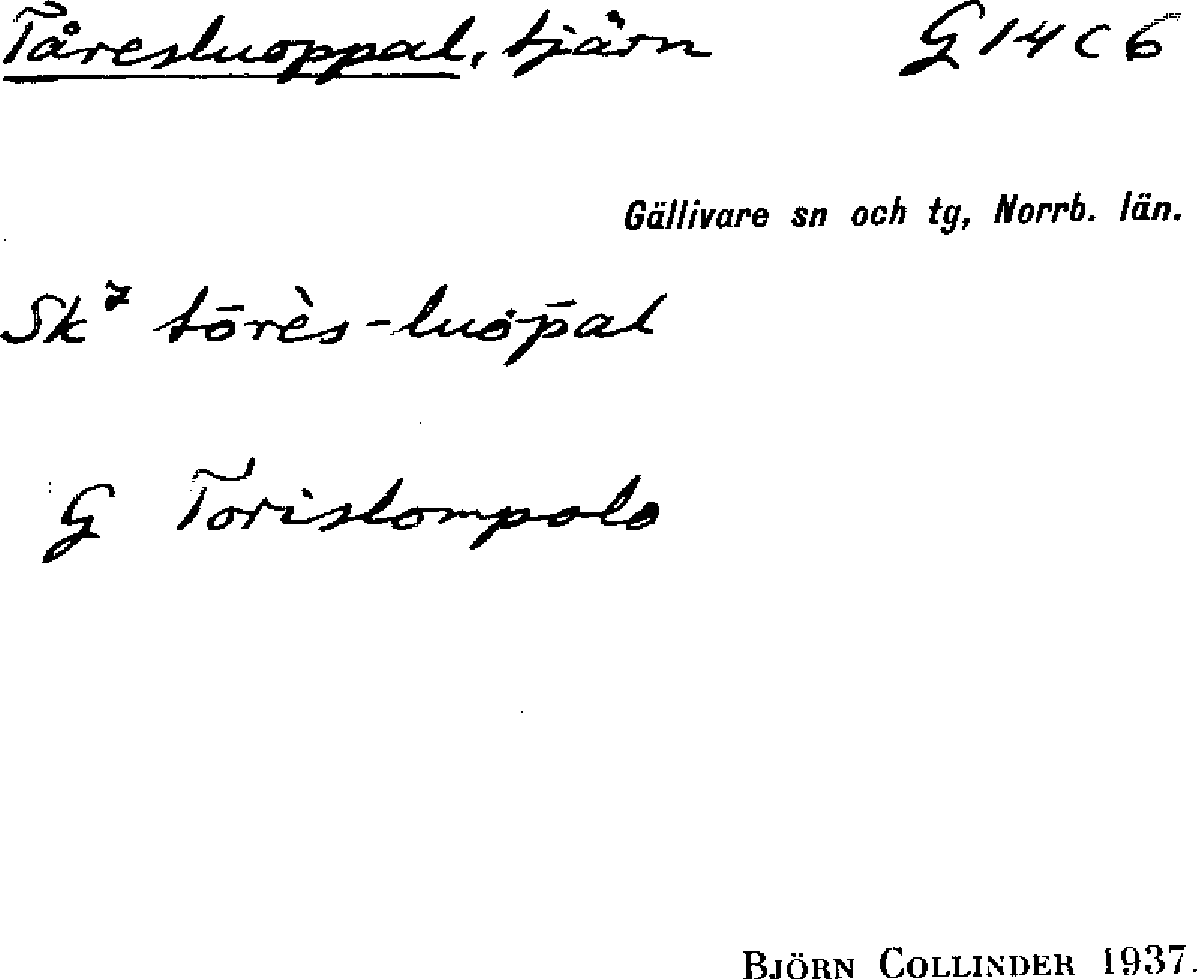 Tåresluoppal, tjärn G 14 c 6
Gällivare sn och tg, Norrb. län.
Sk⁷ tōrès-luȯp̄al
G Torislompolo
BJÖRN COLLINDER 1937.